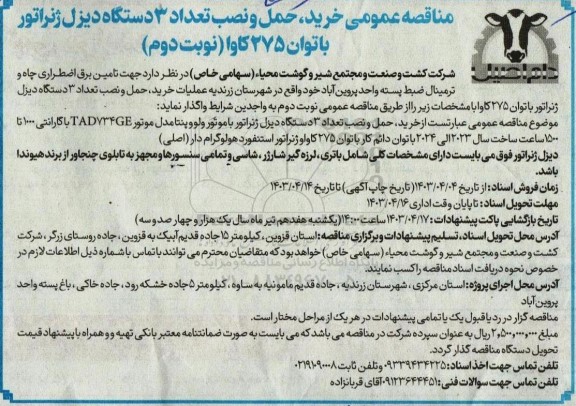 مناقصه عمومی خرید، حمل و نصب تعداد ۳ دستگاه دیزل ژنراتور
با توان ۲۷۵ کاوا (نوبت دوم)
دام اصیل
شرکت کشت و صنعت و مجتمع شیر و گوشت محیاء (سهامی خاص) در نظر دارد جهت تامین برق اضطراری چاه و
ترمینال ضبط پسته واحد پروین آباد خود واقع در شهرستان زرندیه عملیات خرید، حمل و نصب تعداد ۳ دستگاه دیزل
ژنراتور با توان ۲۷۵ کاوا با مشخصات زیر را از طریق مناقصه عمومی نوبت دوم به واجدین شرایط واگذار نماید:
موضوع مناقصه عمومی عبارتست از خرید، حمل و نصب تعداد ۳ دستگاه دیزل ژنراتور با موتور ولوو پنتا مدل موتور TAD734GE با گارانتی ۱۰۰۰ تا
۱۵۰۰ ساعت ساخت سال ۲۰۲۳ الی ۲۰۲۴ با توان دائم کار با توان ۲۷۵ کاوا و ژنراتور استنفورد هولوگرام دار (اصلی)
دیزل ژنراتور فوق می بایست دارای مشخصات کلی شامل باتری، لرزه گیر شارژر، شاسی و تمامی سنسورها و مجهز به تابلوی چنج‌اور از برند هیوندا
باشد.
زمان فروش اسناد: از تاریخ ۱۴۰۳/۰۴/۰۴ (تاریخ چاپ آگهی) تا تاریخ ۱۴۰۳/۰۴/۱۴
مهلت تحویل اسناد: تا پایان وقت اداری ۱۴۰۳/۰۴/۱۶
تاریخ بازگشایی پاکت پیشنهادات: ۱۴۰۳/۰۴/۱۷ ساعت ۱۴:۰۰ (یکشنبه هفدهم تیر ماه سال یک هزار و چهار صد و سه)
آدرس محل تحویل اسناد، تسلیم پیشنهادات و برگزاری مناقصه: استان قزوین، کیلومتر ۱۵ جاده قدیم آبیک به قزوین، جاده روستای زرگر، شرکت
کشت و صنعت و مجتمع شیر و گوشت محیاء (سهامی خاص) خواهد بود که متقاضیان محترم می توانند با تماس با شماره ذیل اطلاعات لازم در
خصوص نحوه دریافت اسناد مناقصه را کسب نمایند.
آدرس محل اجرای پروژه: استان مرکزی، شهرستان زرندیه، جاده قدیم مامونیه به ساوه، کیلومتر ۵ جاده خشکه رود، جاده خاکی، باغ پسته واحد
پروین آباد
مناقصه گزار در رد یا قبول یک یا تمامی پیشنهادات در هر یک از مراحل مختار است.
مبلغ ۲,۵۰۰,۰۰۰,۰۰۰ ریال به عنوان سپرده شرکت در مناقصه می باشد که می بایست به صورت ضمانتنامه معتبر بانکی تهیه و همراه با پیشنهاد قیمت
تحویل دستگاه مناقصه گذار گردد.
تلفن تماس جهت اخذ اسناد: ۰۹۳۳۹۴۳۴۲۲۵ و تلفن ثابت ۰۲۱۹۱۰۹۰۰۰۸
تلفن تماس جهت سوالات فنی: ۰۹۱۲۳۶۴۴۴۵۱ آقای قربانزاده